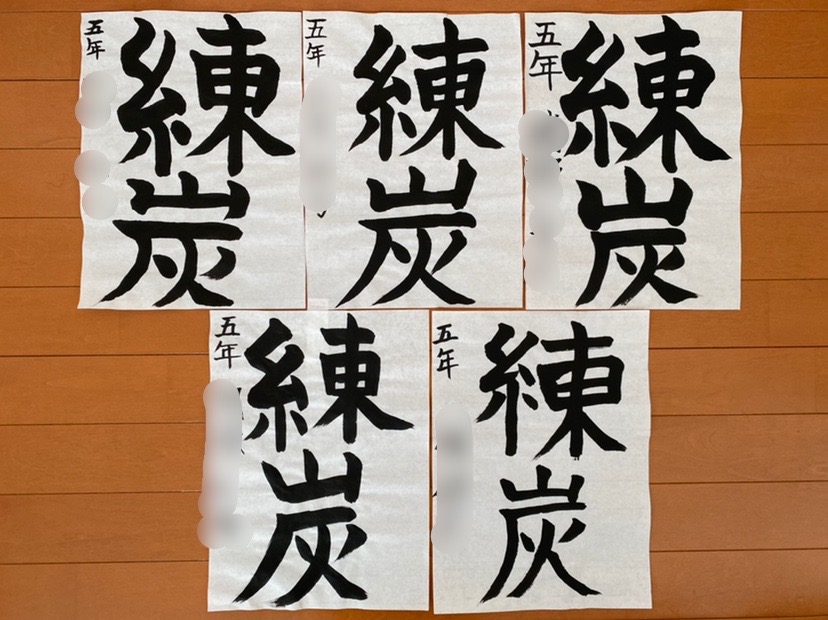 練炭
五年
練炭
五年
練炭
五年
練炭
五年
練炭
五年